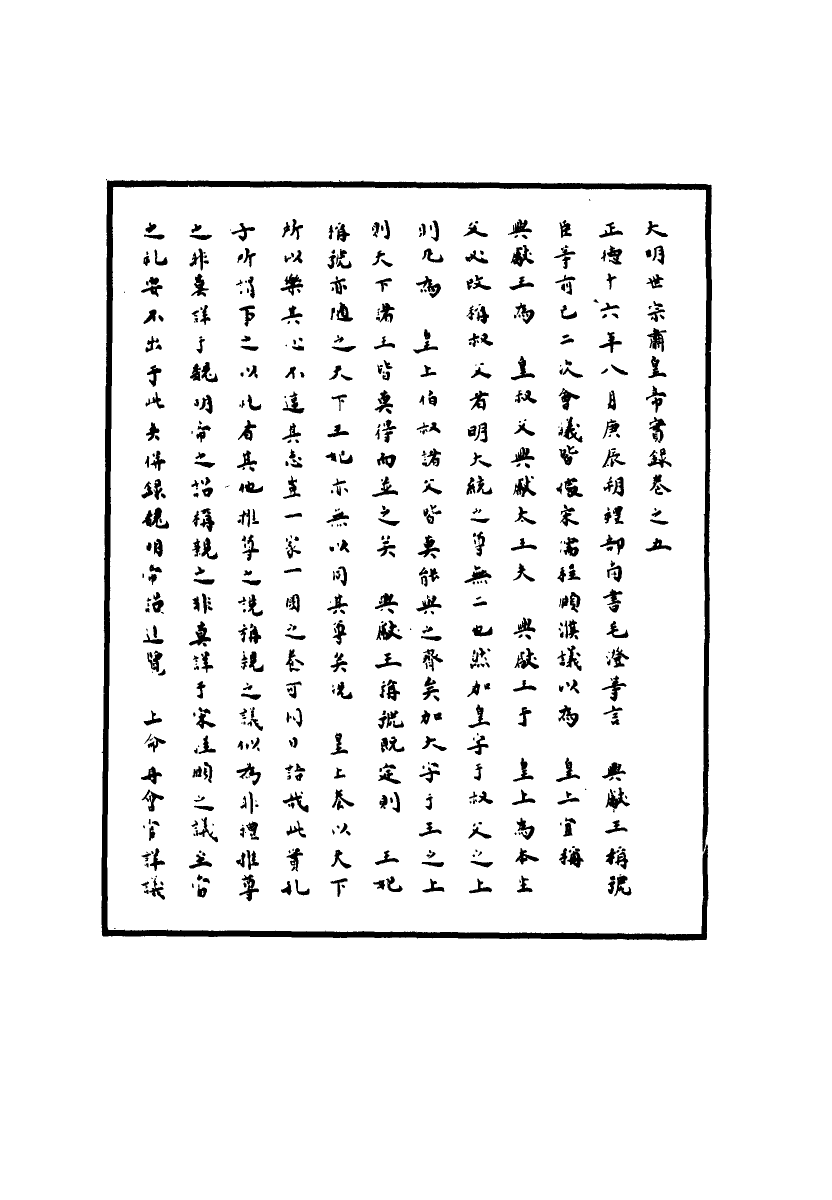 大明世宗肅皇帝實錄卷之五
正德十六年八月庚辰朔禮部尚書毛澄等言　興獻王稱號
臣等前已二次會議皆據宋儒程頤濮議以為　皇上宜稱
興獻王為　皇叔父興獻大王夫　興獻王于　皇上為本生
父必改稱叔父者明大統之尊無二也然加皇字于叔父之上
則凡為　皇上伯叔諸父皆莫能與之齊矣加大字于王之上
則天下諸王皆莫得而並之矣　興獻王稱號既定則　王妃
稱號亦隨之天下王妃亦無以同其尊矣况　皇上養以天下
所以樂其心不違其志豈一家一國之養可同日語哉此實孔
子所謂事之以礼者其他推尊之説稱親之議似為非禮推尊
之非莫詳于魏明帝之詔稱親之非莫詳于宋程頤之議至當
之礼要不出于此夫併録魏明帝詔進覽　上命再會官詳議